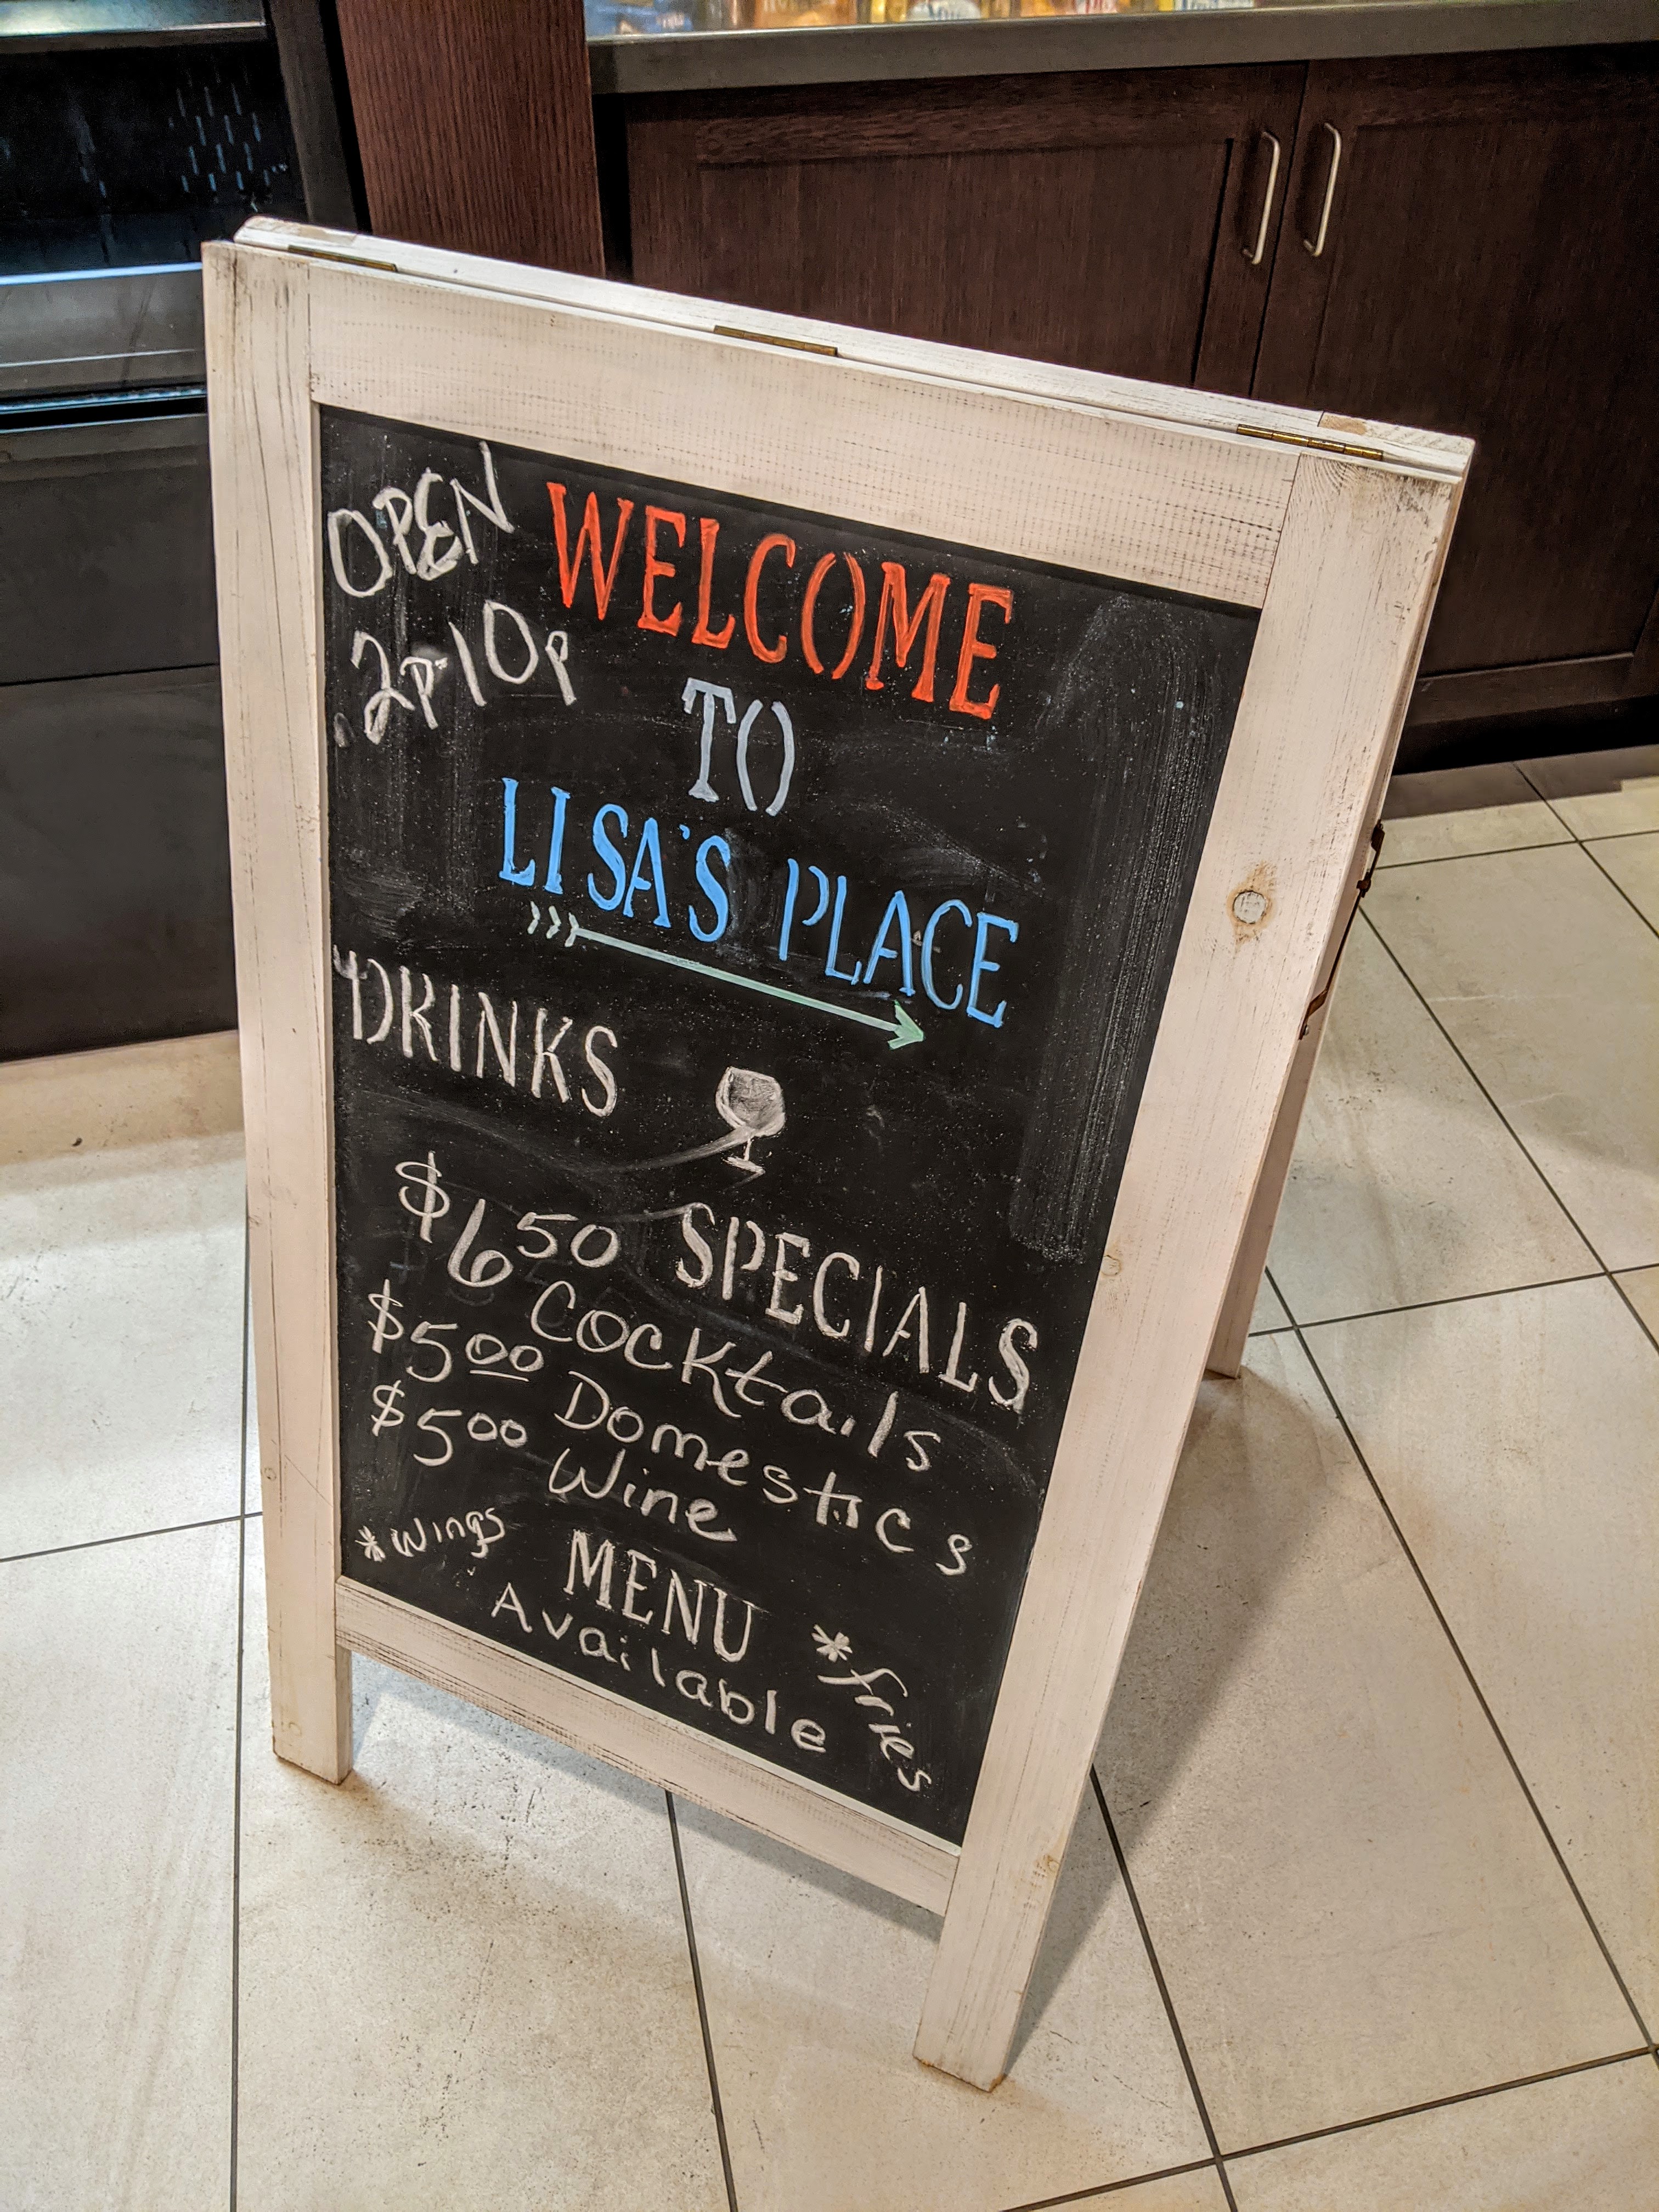 OPEN
2p-10p
WELCOME
TO
LISA'S PLACE
DRINKS
SPECIALS
$6.50 Cocktails
$5.00 Domestics
$5.00 Wine
*Wings
MENU
Available
*fries